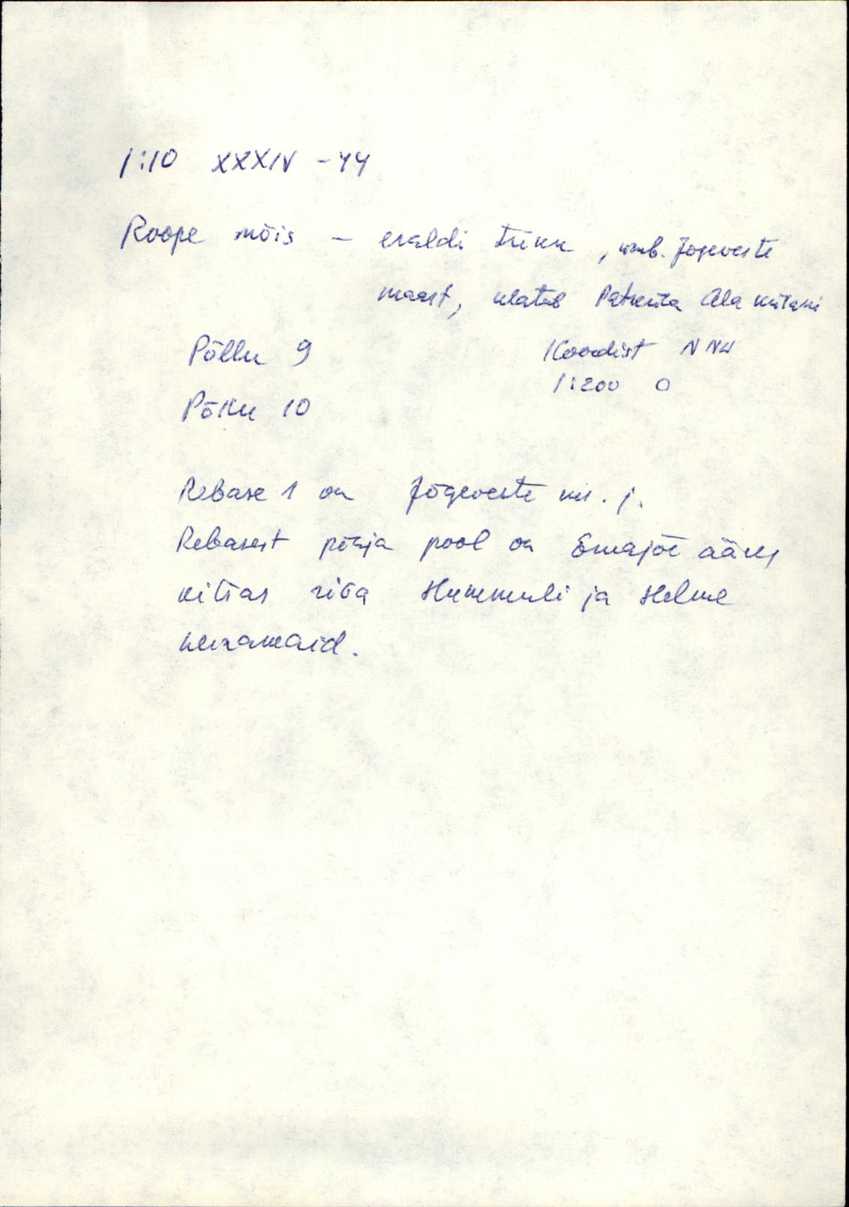 1:10 XXXIV - 44
Roope mõis - eraldi trükk, Jõgeveste
maast, ulatub Patküla Ala külani
Põllu 9 Koodist NNW
Põku 10 1:200 0
Rebase 1 on Jõgeveste kü. j.
Rebasest põhja pool on Emajõe ääres
kitsas riba Hummuli ja Helme
heinamaid.